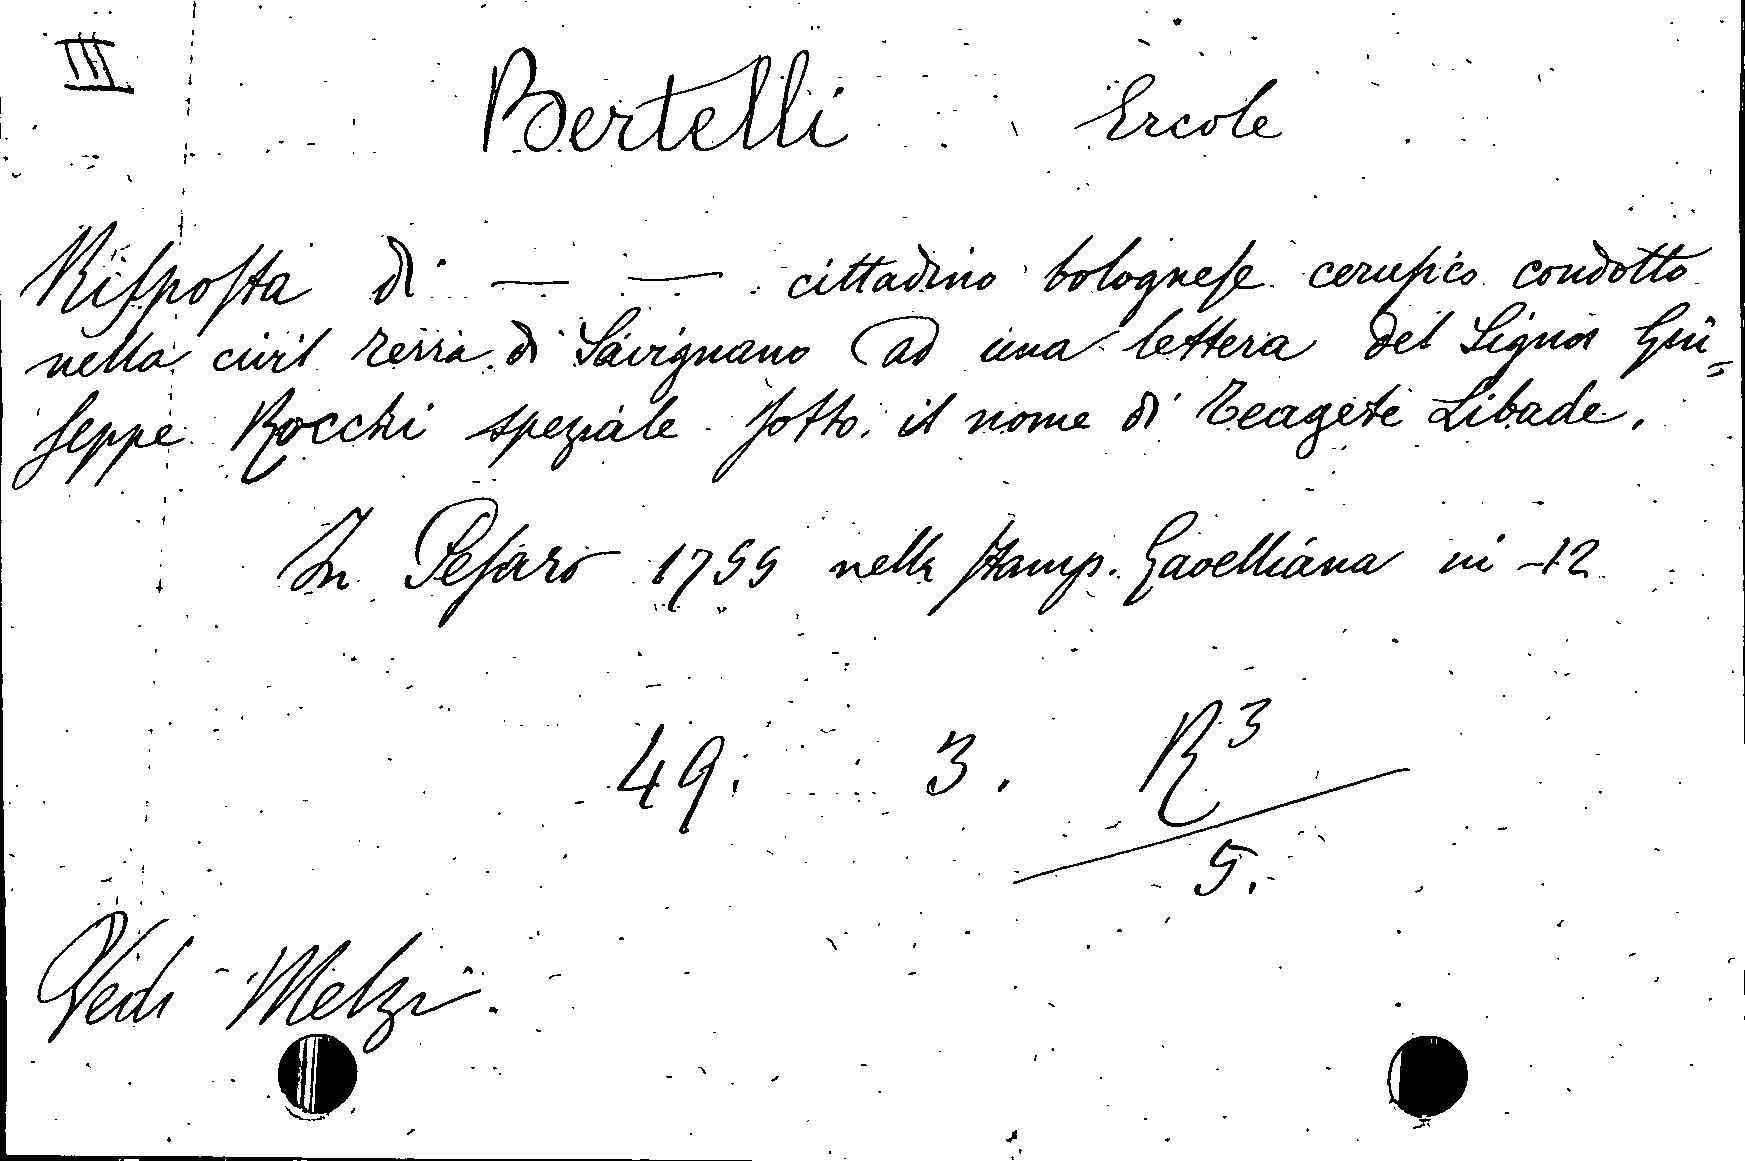 III
Bertelli Ercole
Risposta di — — cittadino bolognese cerusico condotto
nella civil Terra di Savignano ad una lettera del Signor Giu=
seppe Rocchi speziale sotto il nome di Teagete Libade.
In Pesaro 1755 nella stamp. Gavelliana in -12
49. 3. R3
5.
Vedi Melzi.